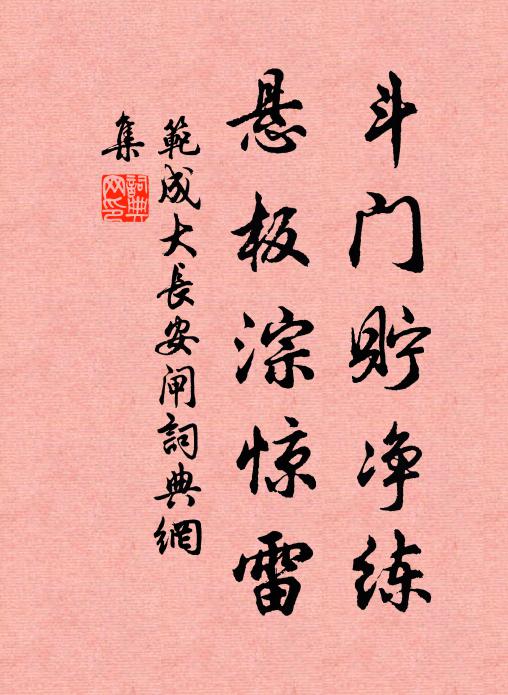 斗门贮净练
悬板淙惊雷
範成大长安闸詞典網
集
詞典网印